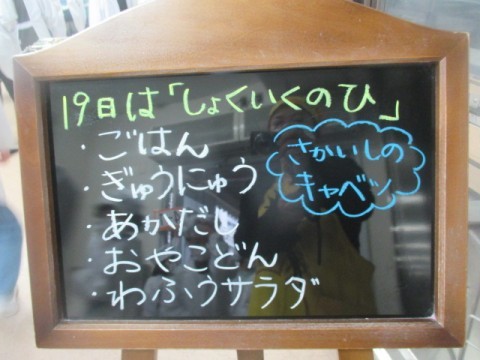 19日は「しょくいくのひ」
・ごはん
・ぎゅうにゅう
・あかだし
・おやこどん
・わふうサラダ
さかいしの
キャベツ